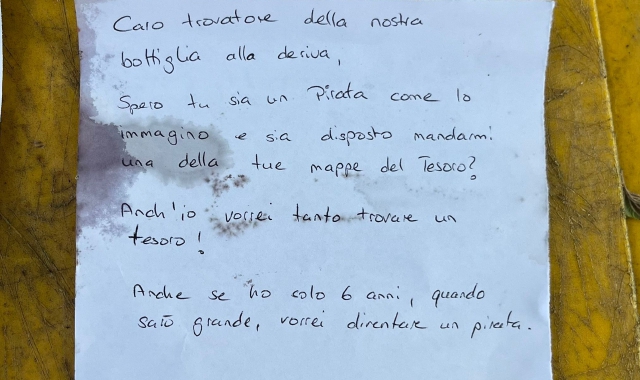 Caro trovatore della nostra
bottiglia alla deriva,
Spero tu sia un Pirata come lo
immagino e sia disposto mandarmi
una della tue mappe del Tesoro?
Anch'io vorrei tanto trovare un
tesoro!
Anche se ho solo 6 anni, quando
sarò grande, vorrei diventare un pirata.